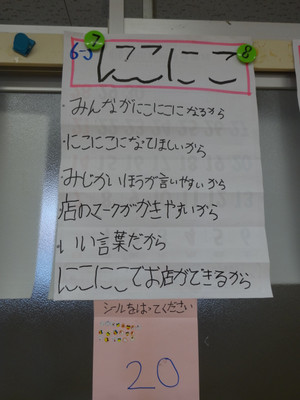 7
8
6-3
にこにこ
・みんながにこにこになるから
・にこにこになってほしいから
・みじかいほうが言いやすいから
・店のマークがかきやすいから
・いい言葉だから
・にこにこでお店ができるから
シールをはってください
20